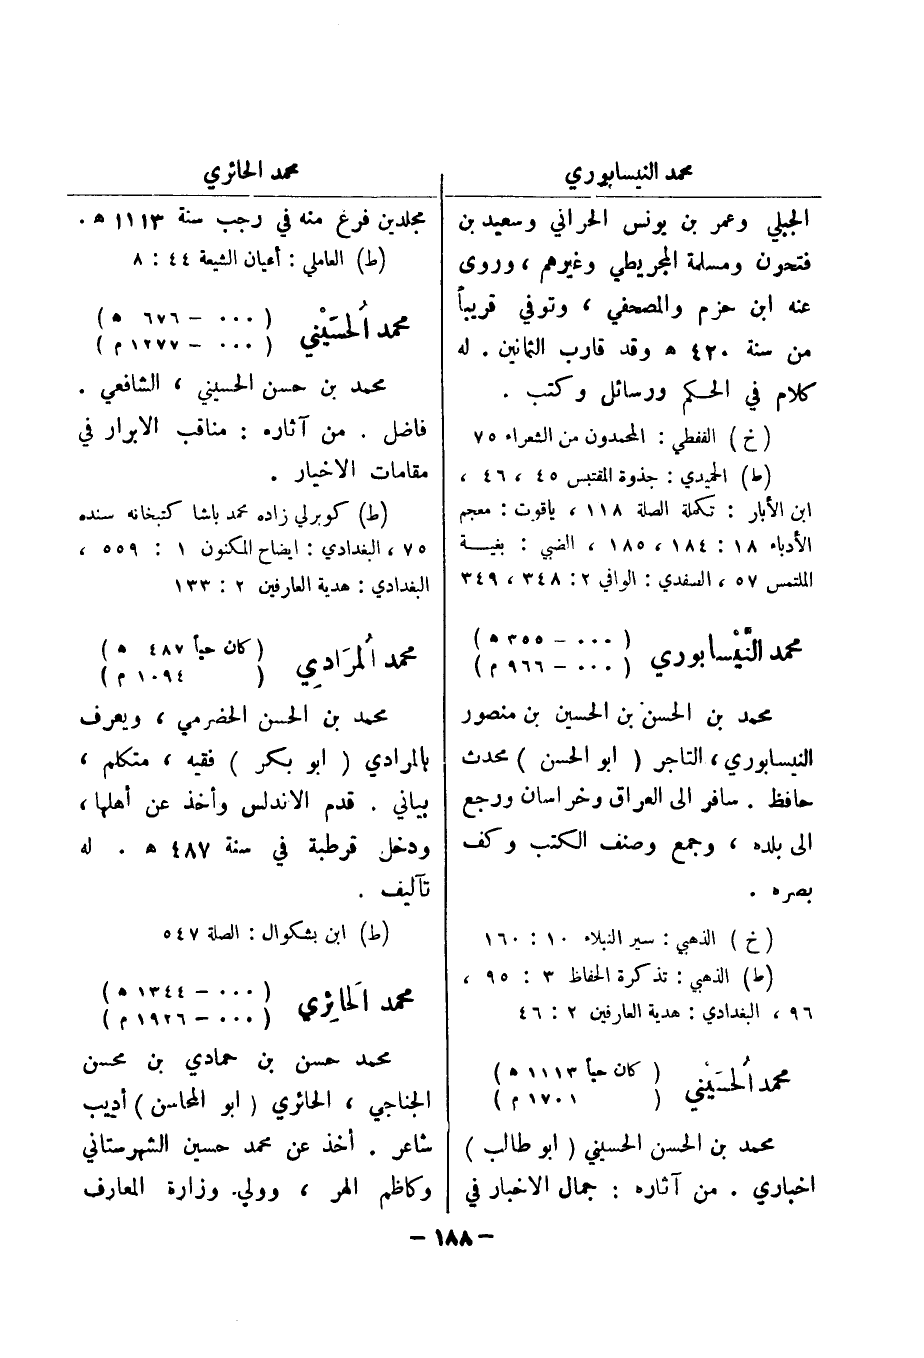 محمد النيسابوري
الجبلي وعمر بن يونس الحراني وسعيد بن
فتحون ومسلمة المجريطي وغيرهم ، وروى
عنه ابن حزم والمصحفي ، وتوفي قريباً
من سنة ٤٢٠ ه وقد قارب الثمانين . له
كلام في الحكم ورسائل وكتب .
(خ) القفطي : المحمدون من الشعراء ٧٥
(ط) الحميدي : جذوة المقتبس ٤٥ ، ٤٦ ،
ابن الأبار : تكملة الصلة ١١٨ ، ياقوت : معجم
الأدباء ١٨ : ١٨٤ ، ١٨٥ ، الضبي : بغيـــة
الملتمس ٥٧ ، الصفدي : الوافي ٢ : ٣٤٨ ، ٣٤٩
محمد النَّيْسابوري ( ٠٠٠ – ٣٥٥ ه )
( ٠٠٠ – ٩٦٦ م )
محمد بن الحسن بن الحسين بن منصور
النيسابوري ، التاجر ( ابو الحسن ) محدث
حافظ . سافر الى العراق وخراسان ورجع
الى بلده ، وجمع وصنف الكتب وكف
بصره .
(خ) الذهبي : سير النبلاء ١٠ : ١٦٠
(ط) الذهبي : تذكرة الحفاظ ٣ : ٩٥ ،
٩٦ ، البغدادي : هدية العارفين ٢ : ٤٦
محمد الحُسَيْني ( كان حياً ١١١٣ ه )
( ١٧٠١ م )
محمد بن الحسن الحسيني ( ابو طالب )
اخباري . من آثاره : جمال الاخبار في
محمد الحائري
مجلدين فرغ منه في رجب سنة ١١١٣ ه .
(ط) العاملي : أعيان الشيعة ٤٤ : ٨
محمد الحُسَيْني ( ٠٠٠ – ٦٧٦ ه )
( ٠٠٠ – ١٢٧٧ م )
محمد بن حسن الحسيني ، الشافعي .
فاضل . من آثاره : مناقب الابرار في
مقامات الاخيار .
(ط) كوبرلي زاده محمد باشا كتبخانه سنده
٧٥ ، البغدادي : ايضاح المكنون ١ : ٥٥٩ ،
البغدادي : هدية العارفين ٢ : ١٣٣
محمد المُرَادِي ( كان حياً ٤٨٧ ه )
( ١٠٩٤ م )
محمد بن الحسن الحضرمي ، ويعرف
بالمرادي ( ابو بكر ) فقيه ، متكلم ،
بياني . قدم الاندلس وأخذ عن أهلها ،
ودخل قرطبة في سنة ٤٨٧ ه . له
تآليف .
(ط) ابن بشكوال : الصلة ٥٤٧
محمد الحَائِري ( ٠٠٠ – ١٣٤٤ ه )
( ٠٠٠ – ١٩٢٦ م )
محمد حسن بن حمادي بن محسن
الجناجي ، الحائري ( ابو المحاسن ) أديب
شاعر . أخذ عن محمد حسين الشهرستاني
وكاظم الهر ، وولي وزارة المعارف
– ١٨٨ –